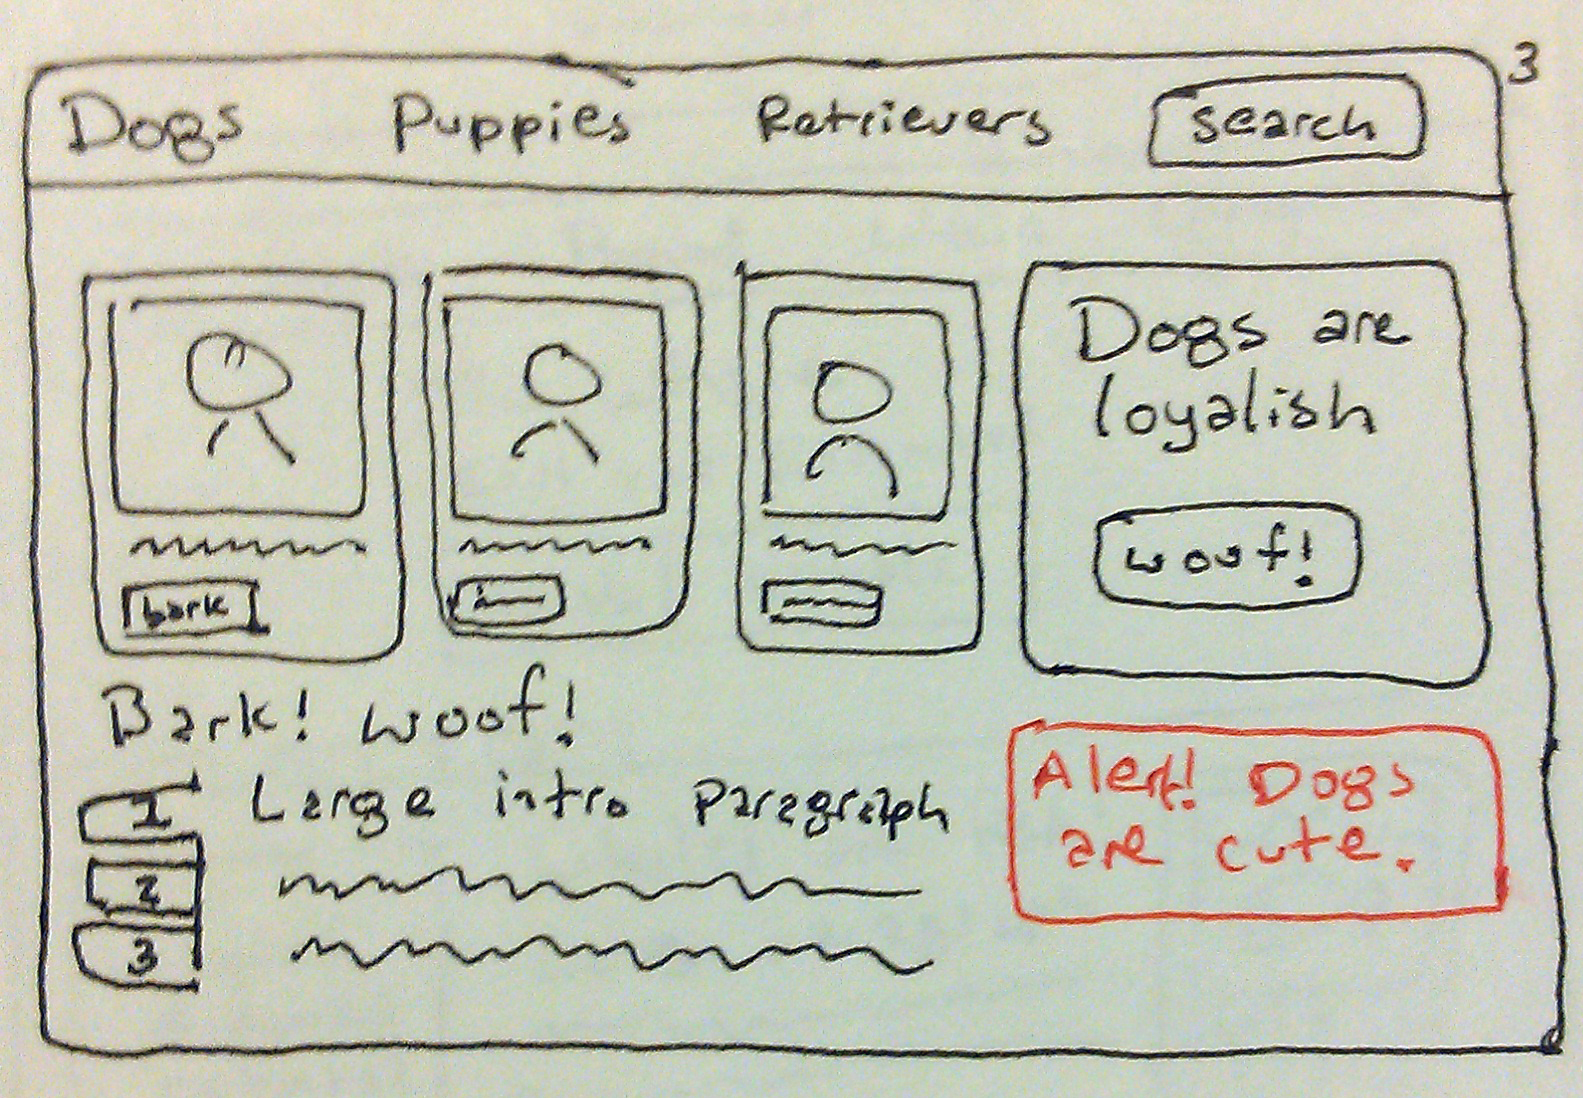 3
Dogs Puppies Retrievers search
Dogs are
loyalish
woof!
bark
Bark! woof!
1 Large intro Paragraph
2
3
Alert! Dogs
are cute.